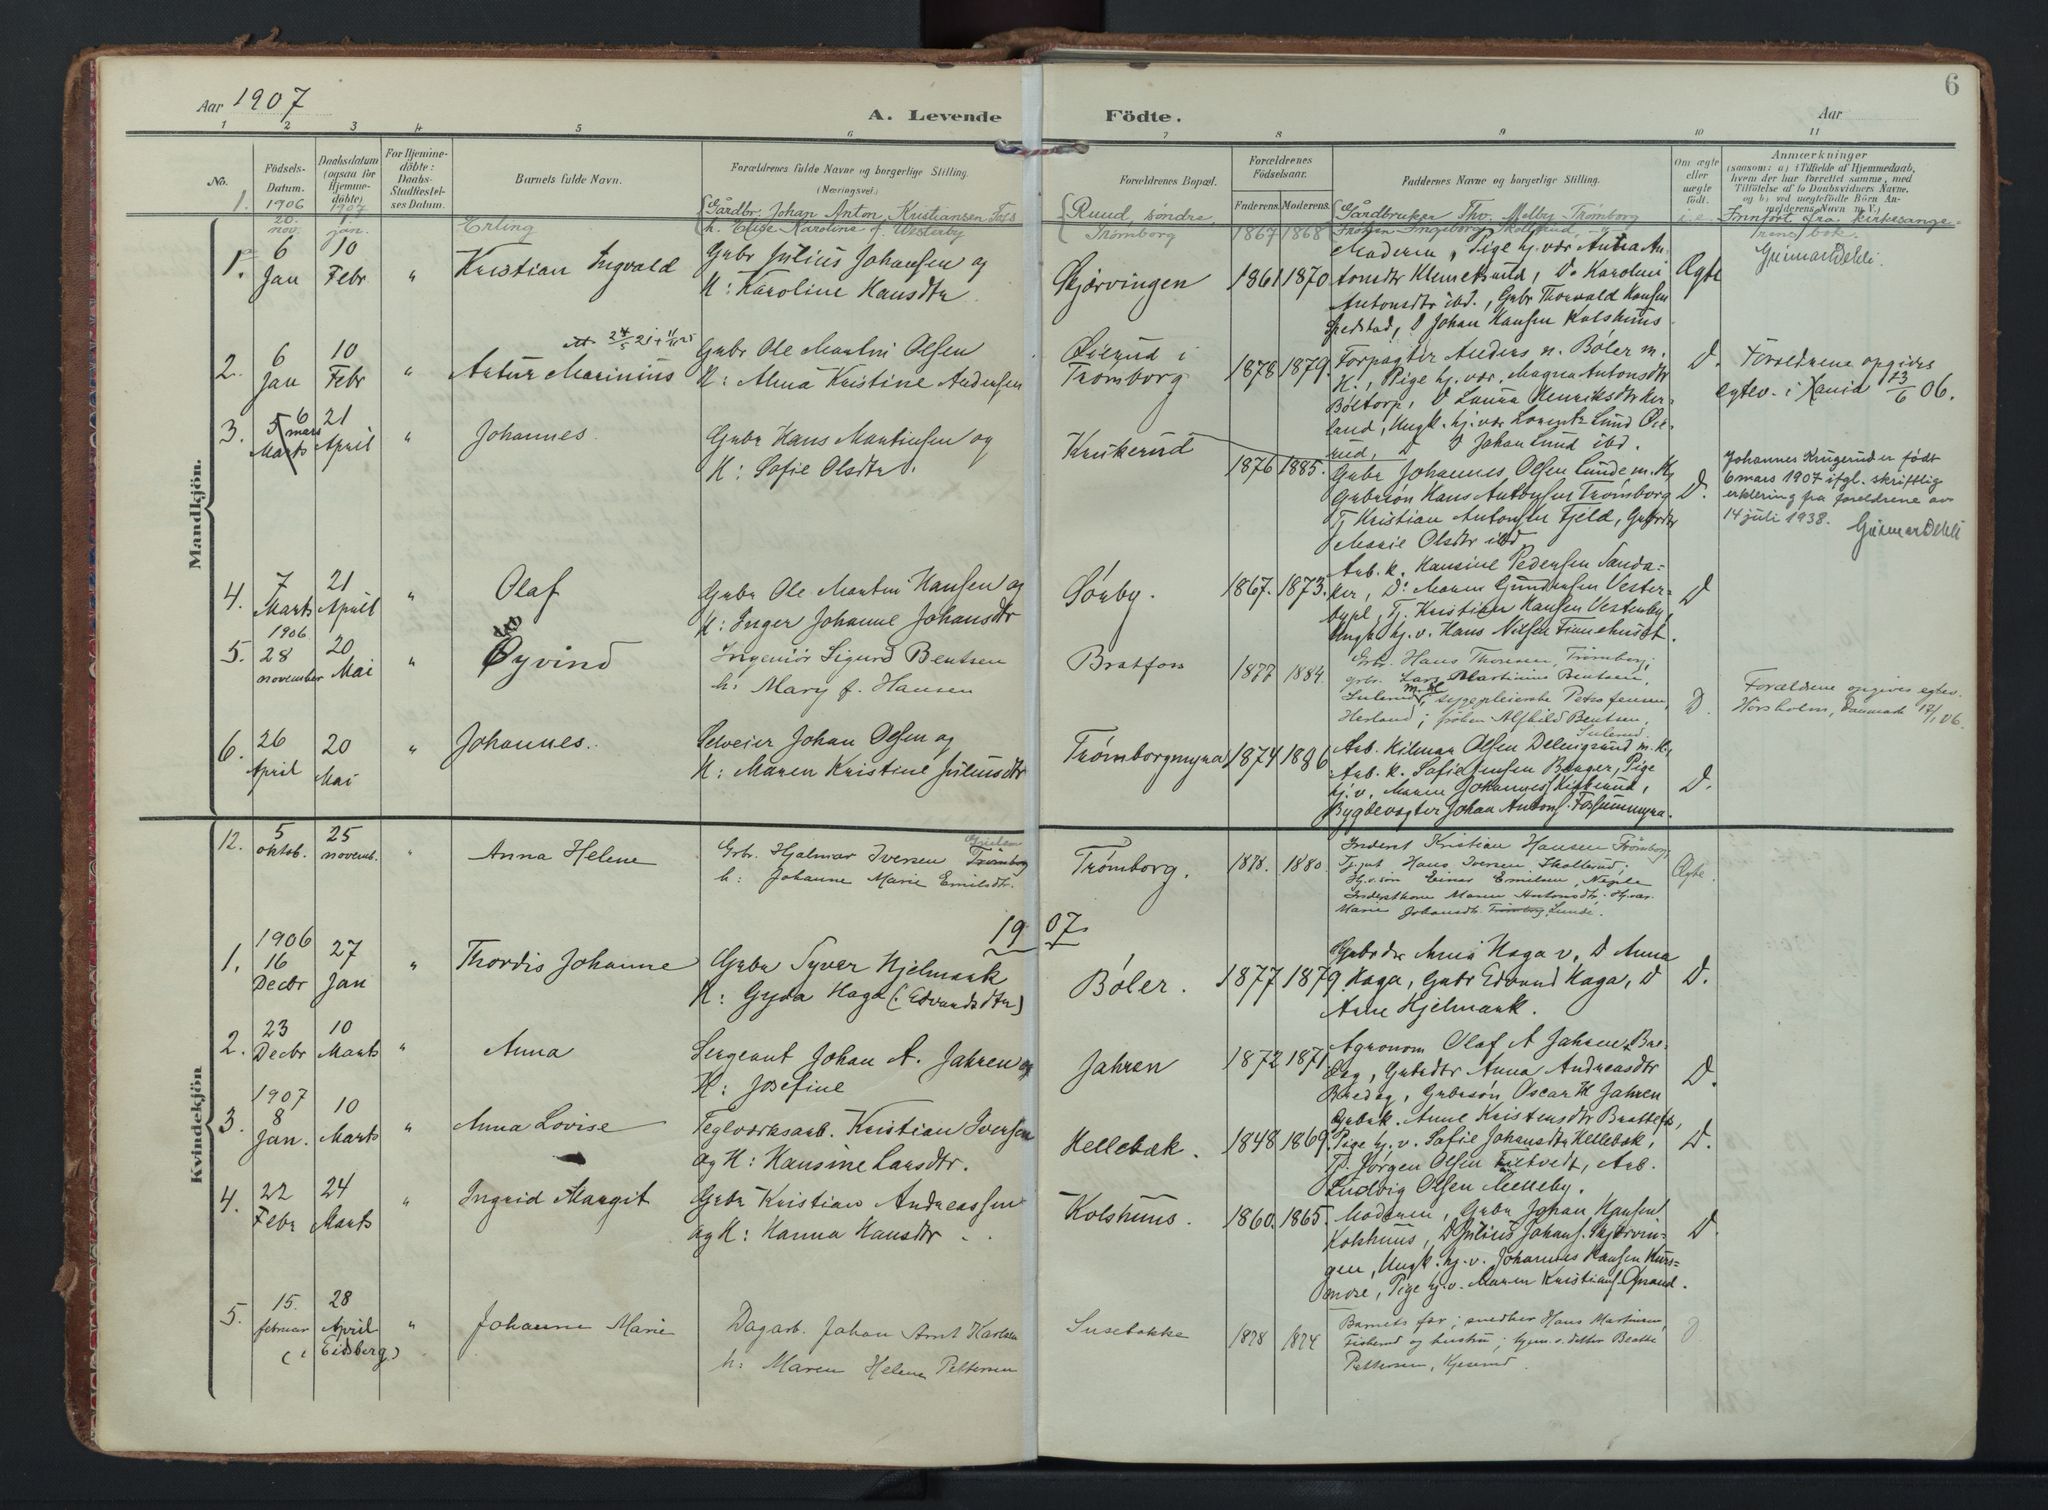 Aar 1907
A. Levende Födte.
Aar
6
1 2 3 4 5 6 7 8 9 10 11
No.
Födsels-Datum.
1906
Daabsdatum (ogsaa for Hjemmedöbte)
1907
For Hjemmedöbte: Daabs-Stadfæstelses Datum.
Barnets fulde Navn.
Forældrenes fulde Navne og borgerlige Stilling.
(Næringsvei.)
Forældrenes Bopæl.
Forældrenes Födselsaar.
Faderens. Moderens.
Faddernes Navne og borgerlige Stilling.
Om ægte eller uægte födt.
Anmærkninger
(saasom: a) i Tilfælde af Hjemmedaab,
hvem der har forrettet samme, med
Tilföielse af to Daabsvidners Navne.
og b) ved uægtefödte Börn Anmelderens Navn m. V.)
Mandkjön.
1. 20. nov. 1. jan. Erling
Gårdbr. Johan Anton Kristiansen Foss
h. Elise Karoline f. Westerby
Ruud, søndre
Trømborg
1867 1868
Gårdbruker Thv. Melby Trømborg
Innført fra kirkesange-
rens bok.
Geirmar Dehli.
1. 6 Jan 10 Febr " Kristian Ingvald
Gubr Julius Johansen og
K: Karoline Hansdtr
Skjørvingen 1861 1870
Moderen, Pige hj. vær Antea An-
tonsdtr Klemetsrud, Do Karoline
Antonsdtr ibd., Gubr Thorvald Hansen
Spedstad, D Johan Hansen Kolshuus
Ægte
2. 6 Jan 10 Febr " Artur Marinius
Gubr Ole Martin Olsen
K: Alma Kristine Andersen
Øierud i
Trømborg
1878 1879.
Forpagter Anders n. Bøler m.
H., Pige hj. vær. Magna Antonsdtr
Böltorp, D Laura Henriksdtr Ker-
land, Ungk. hj. vær Lorentz Lund Øie-
rud, D D Johan Lund ibd.
D.
Forældrene opgives
egtev. i Xania 13/6 06.
3. 5 Marts 6 mars 21 April " Johannes.
Gubr Hans Martinsen og
K: Sofie Olsdtr.
Krukerud
1876 1885.
Gubr Johannes Olsen Lunde m. H,
Gubrsøn Hans Antonsen Trømborg
Tj Kristian Antonsen Fjeld, Gubrdtr
Marie Olsdtr ibd
D.
Johannes Krugerud er født
6 mars 1907 ifgl. skriftlig
erklering fra foreldrene av
14 juli 1938. Geirmar Dehli
4. 7 Marts 21 April " Olaf
Gubr Ole Martin Hansen og
K: Inger Johanne Johansdtr
Sørby. 1867. 1873.
Arb. k. Hansine Pedersen Sanda-
ker, D: Maren Gundersen Vester-
bypl, Tj. Kristian Hansen Vestenby,
Ungk hj. v. Hans Nilsen Finnehuset.
D
5. 1906 28 november 20 Mai " Øyvind
Ingeniör Sigurd Bentsen
h: Mary f. Hansen
Bratfoss 1877 1884.
Grb. Hans Thoresen, Trømborg;
grbr. Lars Martinius Bentsen,
Sulerud m. H; sygepleierske Petra Jensen,
Herland; frøken Alfhild Bentsen,
Sulerud.
D.
Forældrene opgives egtev.
Hörsholm, Danmark 17/1 06.
6. 26 April 20 Mai " Johannes.
Selveier Johan Olsen og
K: Maren Kristine Juliusdtr
Trømborgmyra 1874 1886
Arb. Hilmar Olsen Delingsrud m. H,
Arb. k. Sofie Jensen Berger, Pige
hj. v. Maren Johannes Kirkerud,
Bygdevægter Johan Antons. Fossummyra.
D.
Kvindekjön
12. 5 oktob. 25 novemb. " Anna Helene
Grbr. Hjalmar Iversen Trømborg
h: Johanne Marie Emilsdtr.
Trømborg. 1878. 1880.
Inderst Kristian Hansen Trømborg
Tj.gut Hans Iversen Skollerud;
Hj.v.søn Einar Emilsen, Negle
Inderstkone Maren Antonsdtr. Hj.vær.
Marie Johansdtr. Trømborg Lunde.
Ægte.
1907.
1. 1906 16 Decbr 27 Jan " Thordis Johanne
Gubr Syver Hjelmark
K: Gyda Haga (Edvardsdtr)
Bøler. 1877 1879
Gubrdtr Anna Haga v, D Anna
Haga, Gubr Edvard Haga, D
Arne Hjelmark.
D.
2. 23 Decbr 10 Marts " Anna
Sergeant Johan A. Jahren og
K: Josefine
Jahren 1872 1871
Agronom Olaf A Jahren, Bre-
deg, Gubrdtr Anna Andreasdtr
Bredeg, Gubrsøn Oscar H Jahren
D.
3. 1907 8 Jan. 10 Marts " Anna Lovise
Teglværksarb. Kristian Iversen
og K: Hansine Larsdtr.
Hellebæk. 1848 1869
Gubrk. Anne Kristensdtr Bratfoss,
Pige hj. v. Sofie Johansdtr Hellebæk,
Tj. Jørgen Olsen Filtvedt, Arb.
Ludvig Olsen Melleby.
D.
4. 22 Febr 24 Marts " Ingrid Margit
Gubr Kristian Andreassen
og K: Hanna Hansdtr.
Kolshuus. 1860. 1865.
Moderen, Gubr Johan Hansen
Kolshuus, D Julius Johans. Skjørvin-
gen, Ungk. hj. v. Johannes Hansen
Pige hj. v. Maren Kristians.
D.
5. 15. februar 28 April (i Eidsberg) " Johanne Marie
Dagarb. Johan Arnt Karlsen
h: Maren Helene Pettersen
Susebakke 1878 1874
Barnets far; snedker Hans Martinsen,
Fiskerud og hustru; hjem.v. datter Beatte
Pettersen,
D